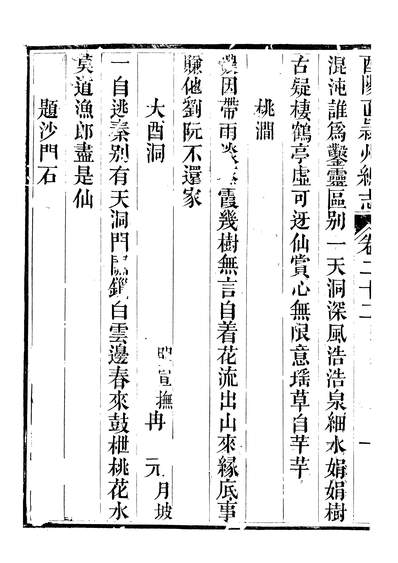 酉陽直隸州總志 卷二十二 一
混沌誰為鑿靈區别一天洞深風浩浩泉細水娟娟樹
古疑棲鶴亭虛可迓仙賞心無限意瑶草自芊芊
桃澗
因帶雨霞幾樹無言自着花流出山來緣底事
賺他劉阮不還家
大酉洞
宣撫冉 元 月坡
一自逃秦别有天洞門鎖白雲邊春來鼓枻桃花水
莫道漁郎盡是仙
題沙門石